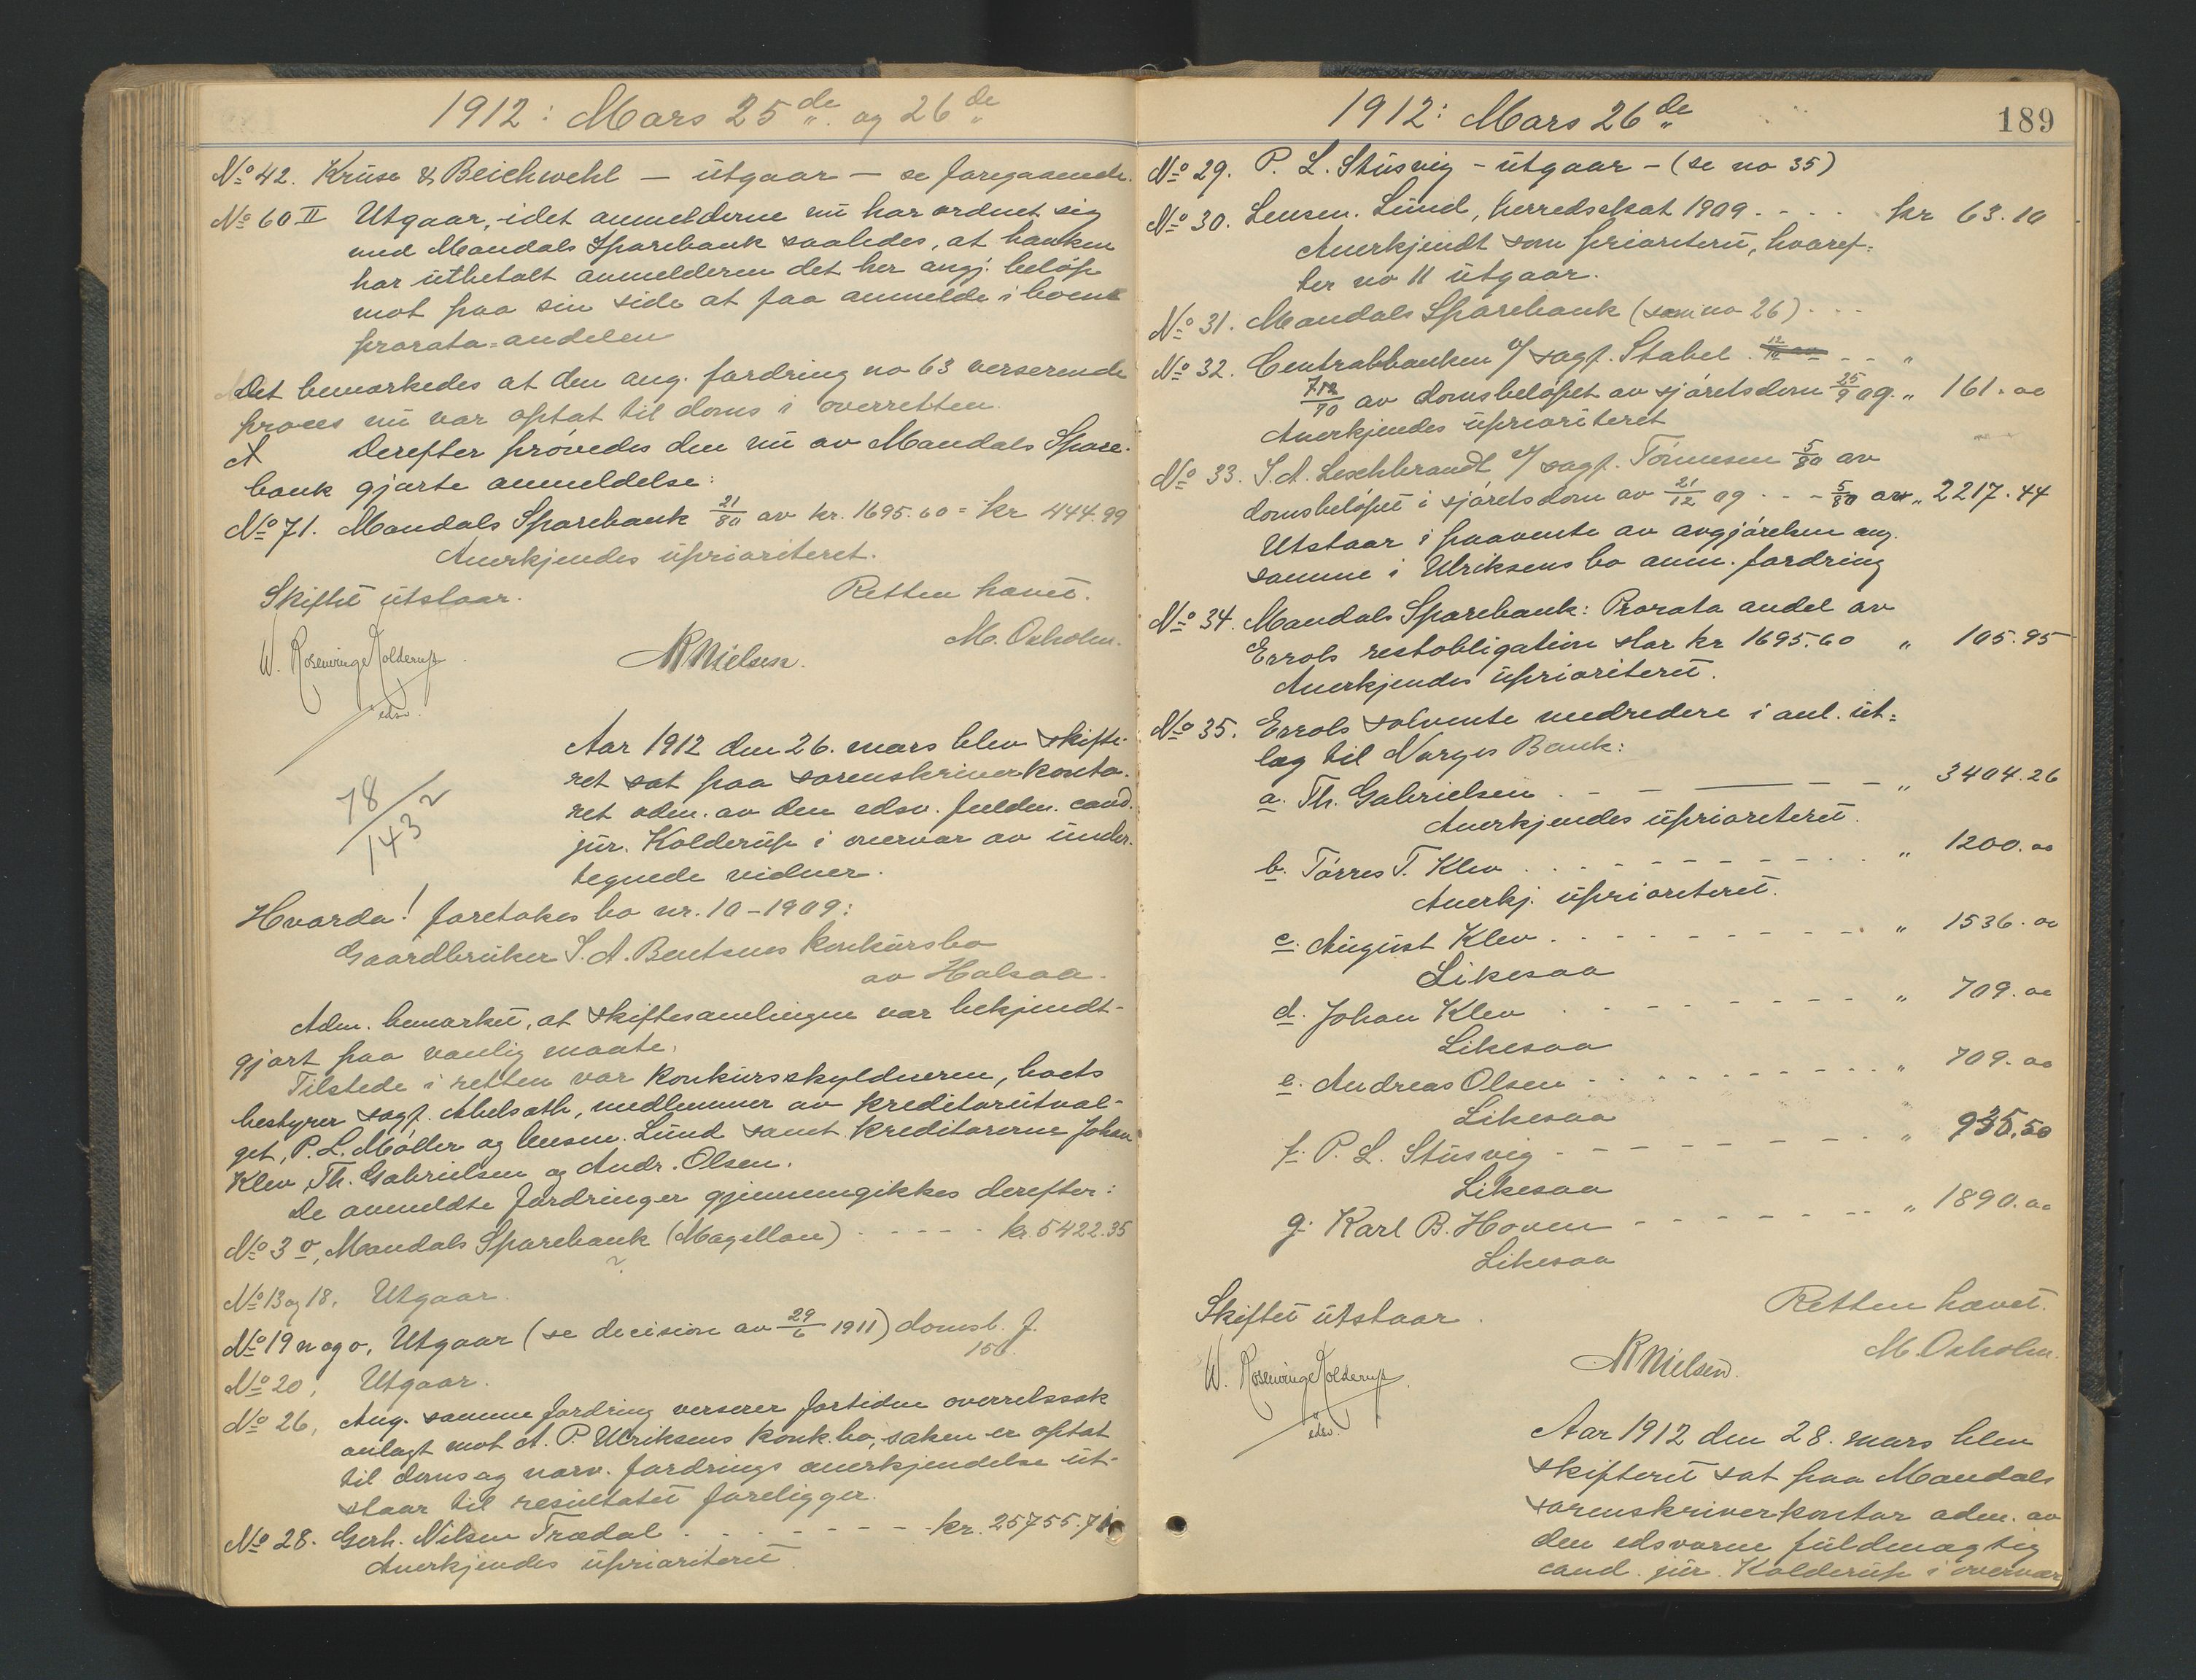 1912: Mars 25de og 26de
No 42. Krüse & Beichwehl — utgaar — se foregaaende.
No 60 II Utgaar, idet anmelderne nu har ordnet sig
med Mandals Sparebank saaledes, at banken
har utbetalt anmelderen det her angj. beløp
mot paa sin side at faa anmelde i boene
prorata=andelen
Det bemerkedes at den ang. fordring no 63 verserende
proces nu var optat til doms i overretten.
Derefter prøvedes den nu av Mandals Spare-
bank gjorte anmeldelse:
No 71. Mandals Sparebank 21/80 av kr. 1695.60 = kr 444.99
Anerkjendes uprioriteret.
Skiftet utstaar. Retten hævet.
W. Rosenvinge Kolderup edsv. NNielsen. M. Oxholm.
78/143 2
Aar 1912 den 26. mars blev skifte-
ret sat paa sorenskriverkonto-
ret adm. av den edsv. fuldm. cand.
jur. Kolderup i overvær av under-
tegnede vidner.
Hvorda! foretokes bo nr. 10 - 1909:
Gaardbruker S. A. Bentsens konkursbo
av Halsaa.
Adm. bemerket, at skiftesamlingen var bekjendt-
gjort paa vanlig maate.
Tilstede i retten var konkursskyldneren, boets
bestyrer sagf. Abelseth, medlemmer av kreditorutval-
get, P. L. Møller og lensm. Lund samt kreditorerne Johan
Klev, Th. Gabrielsen og Andr. Olsen.
De anmeldte fordringer gjennemgikkes derefter:
No 3 o, Mandals Sparebank (Magellan) - - - - kr. 5422.35
No 13 og 18, Utgaar.
No 19 n og o, Utgaar (se decision av 29/6 1911) domsb. f.
156.
No 20, Utgaar.
No 26, Ang. samme fordring verserer fortiden overretssak
anlagt mot A. P. Ulriksens konk.bo, saken er optat
til doms og nærv. fordrings anerkjendelse ut-
staar til resultatet foreligger.
No 28. Gerh. Nilsen Trædal . . . - - - - kr. 25755.71
Anerkjendes uprioriteret.
1912: Mars 26de
189
No 29. P. L. Stusvig - utgaar - (se no 35)
No 30. Lensm. Lund, herredsskat 1909 - - - - kr 63.10
Anerkjendt som prioritert, hvoref=
ter no 11 utgaar.
No 31. Mandals Sparebank (som no 26) - - -
No 32. Centralbanken v/ sagf. Stabel - - - "
av domsbeløpet av sjøretsdom 25/9 09. " 161.00
Anerkjendes uprioriteret
No 33. S. A. Leschbrandt v/ sagf. Tønnesen 5/80 av
domsbeløpet i sjøretsdom av 21/12 09 - - - 5/80 av " 2217.44
Utstaar i paavente av avgjørelsen ang.
samme i Ulriksens bo anm. fordring
No 34. Mandals Sparebank: Prorata andel av
Errols restobligation stor kr 1695.60 " 105.95
Anerkjendes uprioritert.
No 35. Errols solvente medredere i anl. ut=
læg til Norges Bank:
a. Th. Gabrielsen . - - - - " 3404.26
Anerkjendes uprioritert.
b. Tørres T. Klev . . - - - - - - - " 1200.00
Anerkj. uprioritert.
c. August Klev . - - - - - - - - " 1536.00
Likesaa
d. Johan Klev . - - - - - - " 709.00
Likesaa
e. Andreas Olsen - - - - - - - - " 709.00
Likesaa
f. P. L. Stusvig - - - - - - - - " 935.50
Likesaa
g. Karl B. Hoven - - - - - - - " 1890.00
Likesaa
Skiftet utstaar. Retten hævet.
W. Rosenvinge Kolderup edsv. NNielsen. M. Oxholm.
Aar 1912 den 28. mars blev
skifteret sat paa Mandals
sorenskriverkontor adm. av
den edsvorne fuldmægtig
cand. jur. Kolderup i overvær